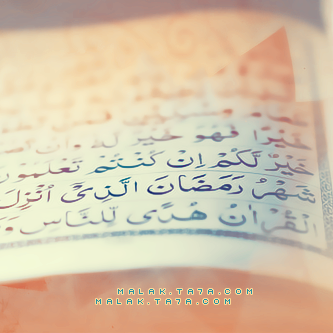 خَيْرًا فَهُوَ خَيْرٌ لَّهُ وَأَن
خَيْرٌ لَّكُمْ إِنْ كُنْتُمْ تَعْلَمُونَ
شَهْرُ رَمَضَانَ الَّذِيْٓ أُنْزِلَ
الْقُرْاٰنُ هُدًى لِّلنَّاسِ
MALAK.TA7A.COM
MALAK.TA7A.COM